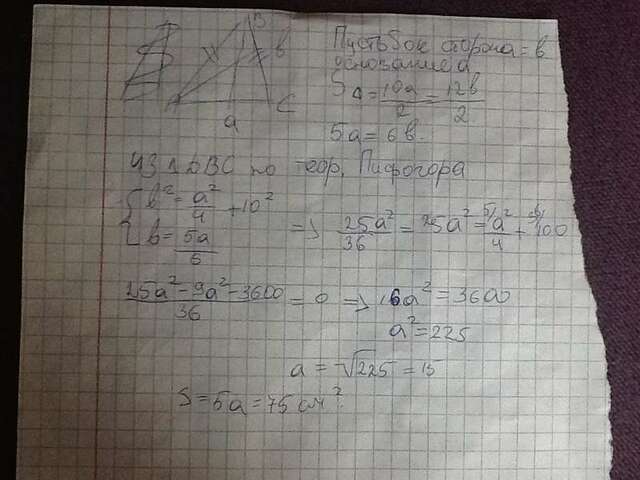 B
b
C
a
Пусть бок сторона = b
основание a
S△ = 10a/2 = 12b/2
5a = 6b
Из △DBC по теор. Пифогора
{ b² = a²/4 + 10²
{ b = 5a/6
=> 25a²/36 = 25a² = a²/4 + 100
25a² - 9a² - 3600/36 = 0 => 16a² = 3600
a² = 225
a = √225 = 15
S = 5a = 75 см²